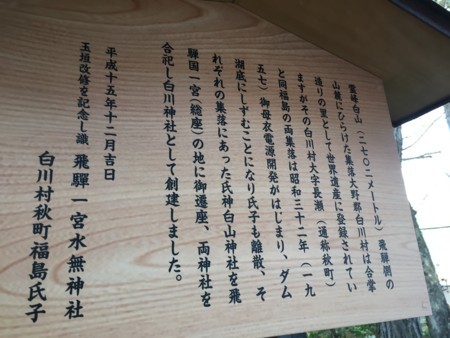 霊峰白山(二七〇二メートル)飛騨側の
山麓にひらけた集落大野郡白川村は合掌
造りの里として世界遺産に登録されてい
ますがその白川村大字長瀬(通称秋町)
と同福島の両集落は昭和三十二年(一九
五七)御母衣電源開発がはじまり、ダム
湖底にしずむことになり氏子も離散、そ
れぞれの集落にあった氏神白山神社を飛
騨国一宮(総座)の地に御遷座、両神社を
合祀し白川神社として創建しました。
平成十五年十二月吉日
玉垣改修を記念し識 飛騨一宮水無神社
白川村秋町福島氏子